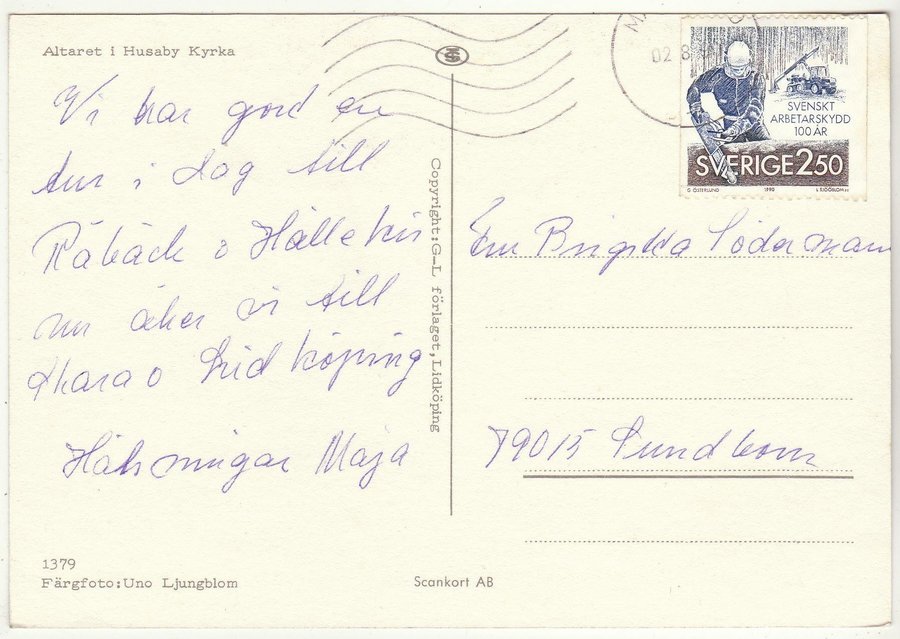 Altaret i Husaby Kyrka
Vi har gord en
tur i dag till
Råbäck o Hällekis
nu åker vi till
Skara o Lidköping
Hälsningar Maja
1379
Färgfoto:Uno Ljungblom
Copyright:G-L förlaget,Lidköping
Scankort AB
02 8
SVENSKT
ARBETARSKYDD
100 ÅR
SVERIGE 2.50
G ÖSTERLUND 1990 L SJÖÖBLOM sc
Birgitta Södermann
79015 Sundborn